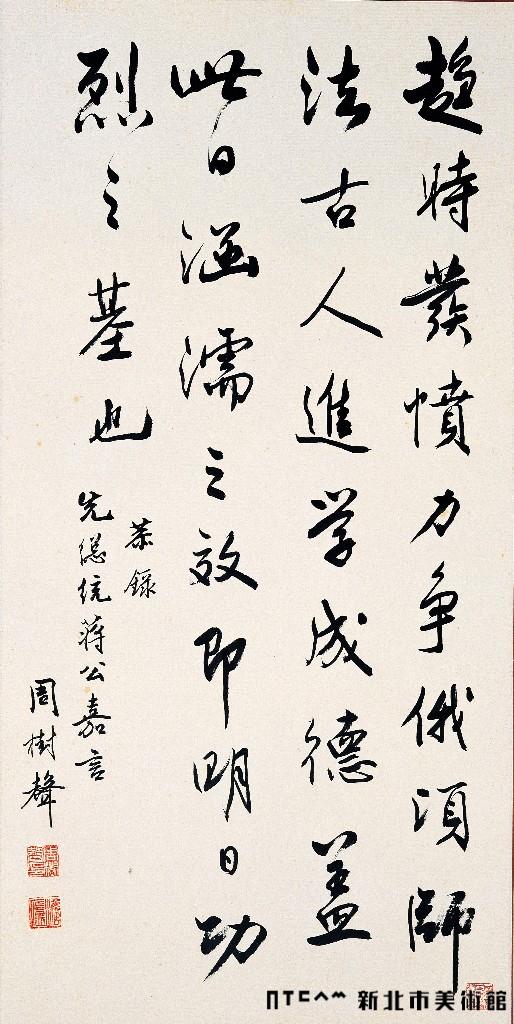 趁時發憤力爭俄頃師
法古人進学成德盖
此日涵濡之效即明日功
烈之基也
恭錄
先總統蔣公嘉言
周樹聲
NTCAM 新北市美術館